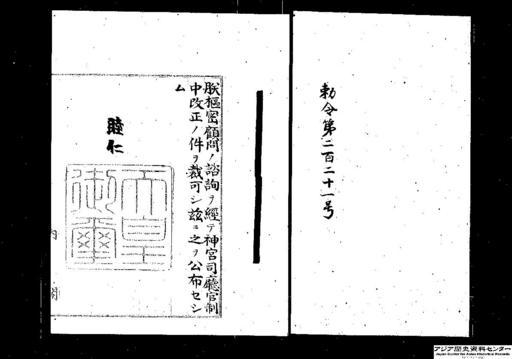 勅令第二百二十一号
朕枢密顧問ノ諮詢ヲ経テ神宮司廳官制
中改正ノ件ヲ裁可シ茲ニ之ヲ公布セシ
ム
睦仁
天皇御璽
内閣
アジア歴史資料センター
Japan Center for Asian Historical Records